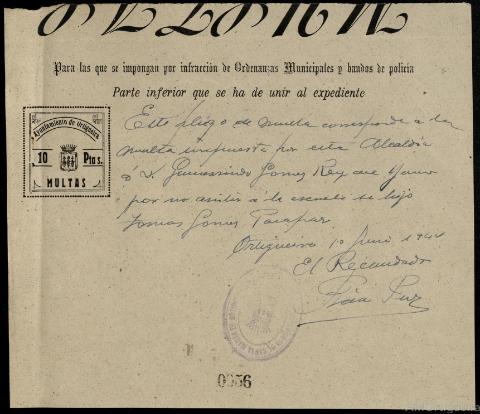 MULTAS
Para las que se impongan por infracción de Ordenanzas Municipales y bandos de policía
Parte inferior que se ha de unir al expediente
Ayuntamiento de Ortigueira
10 Ptas.
MULTAS
Este pliego de multa corresponde a la
multa impuesta por esta Alcaldía
á D. Gumersindo Gomez Rey
por no asistir á la escuela su hijo
Tomas Gomez
Ortigueira 10 Junio 1944
El Recaudador
0356